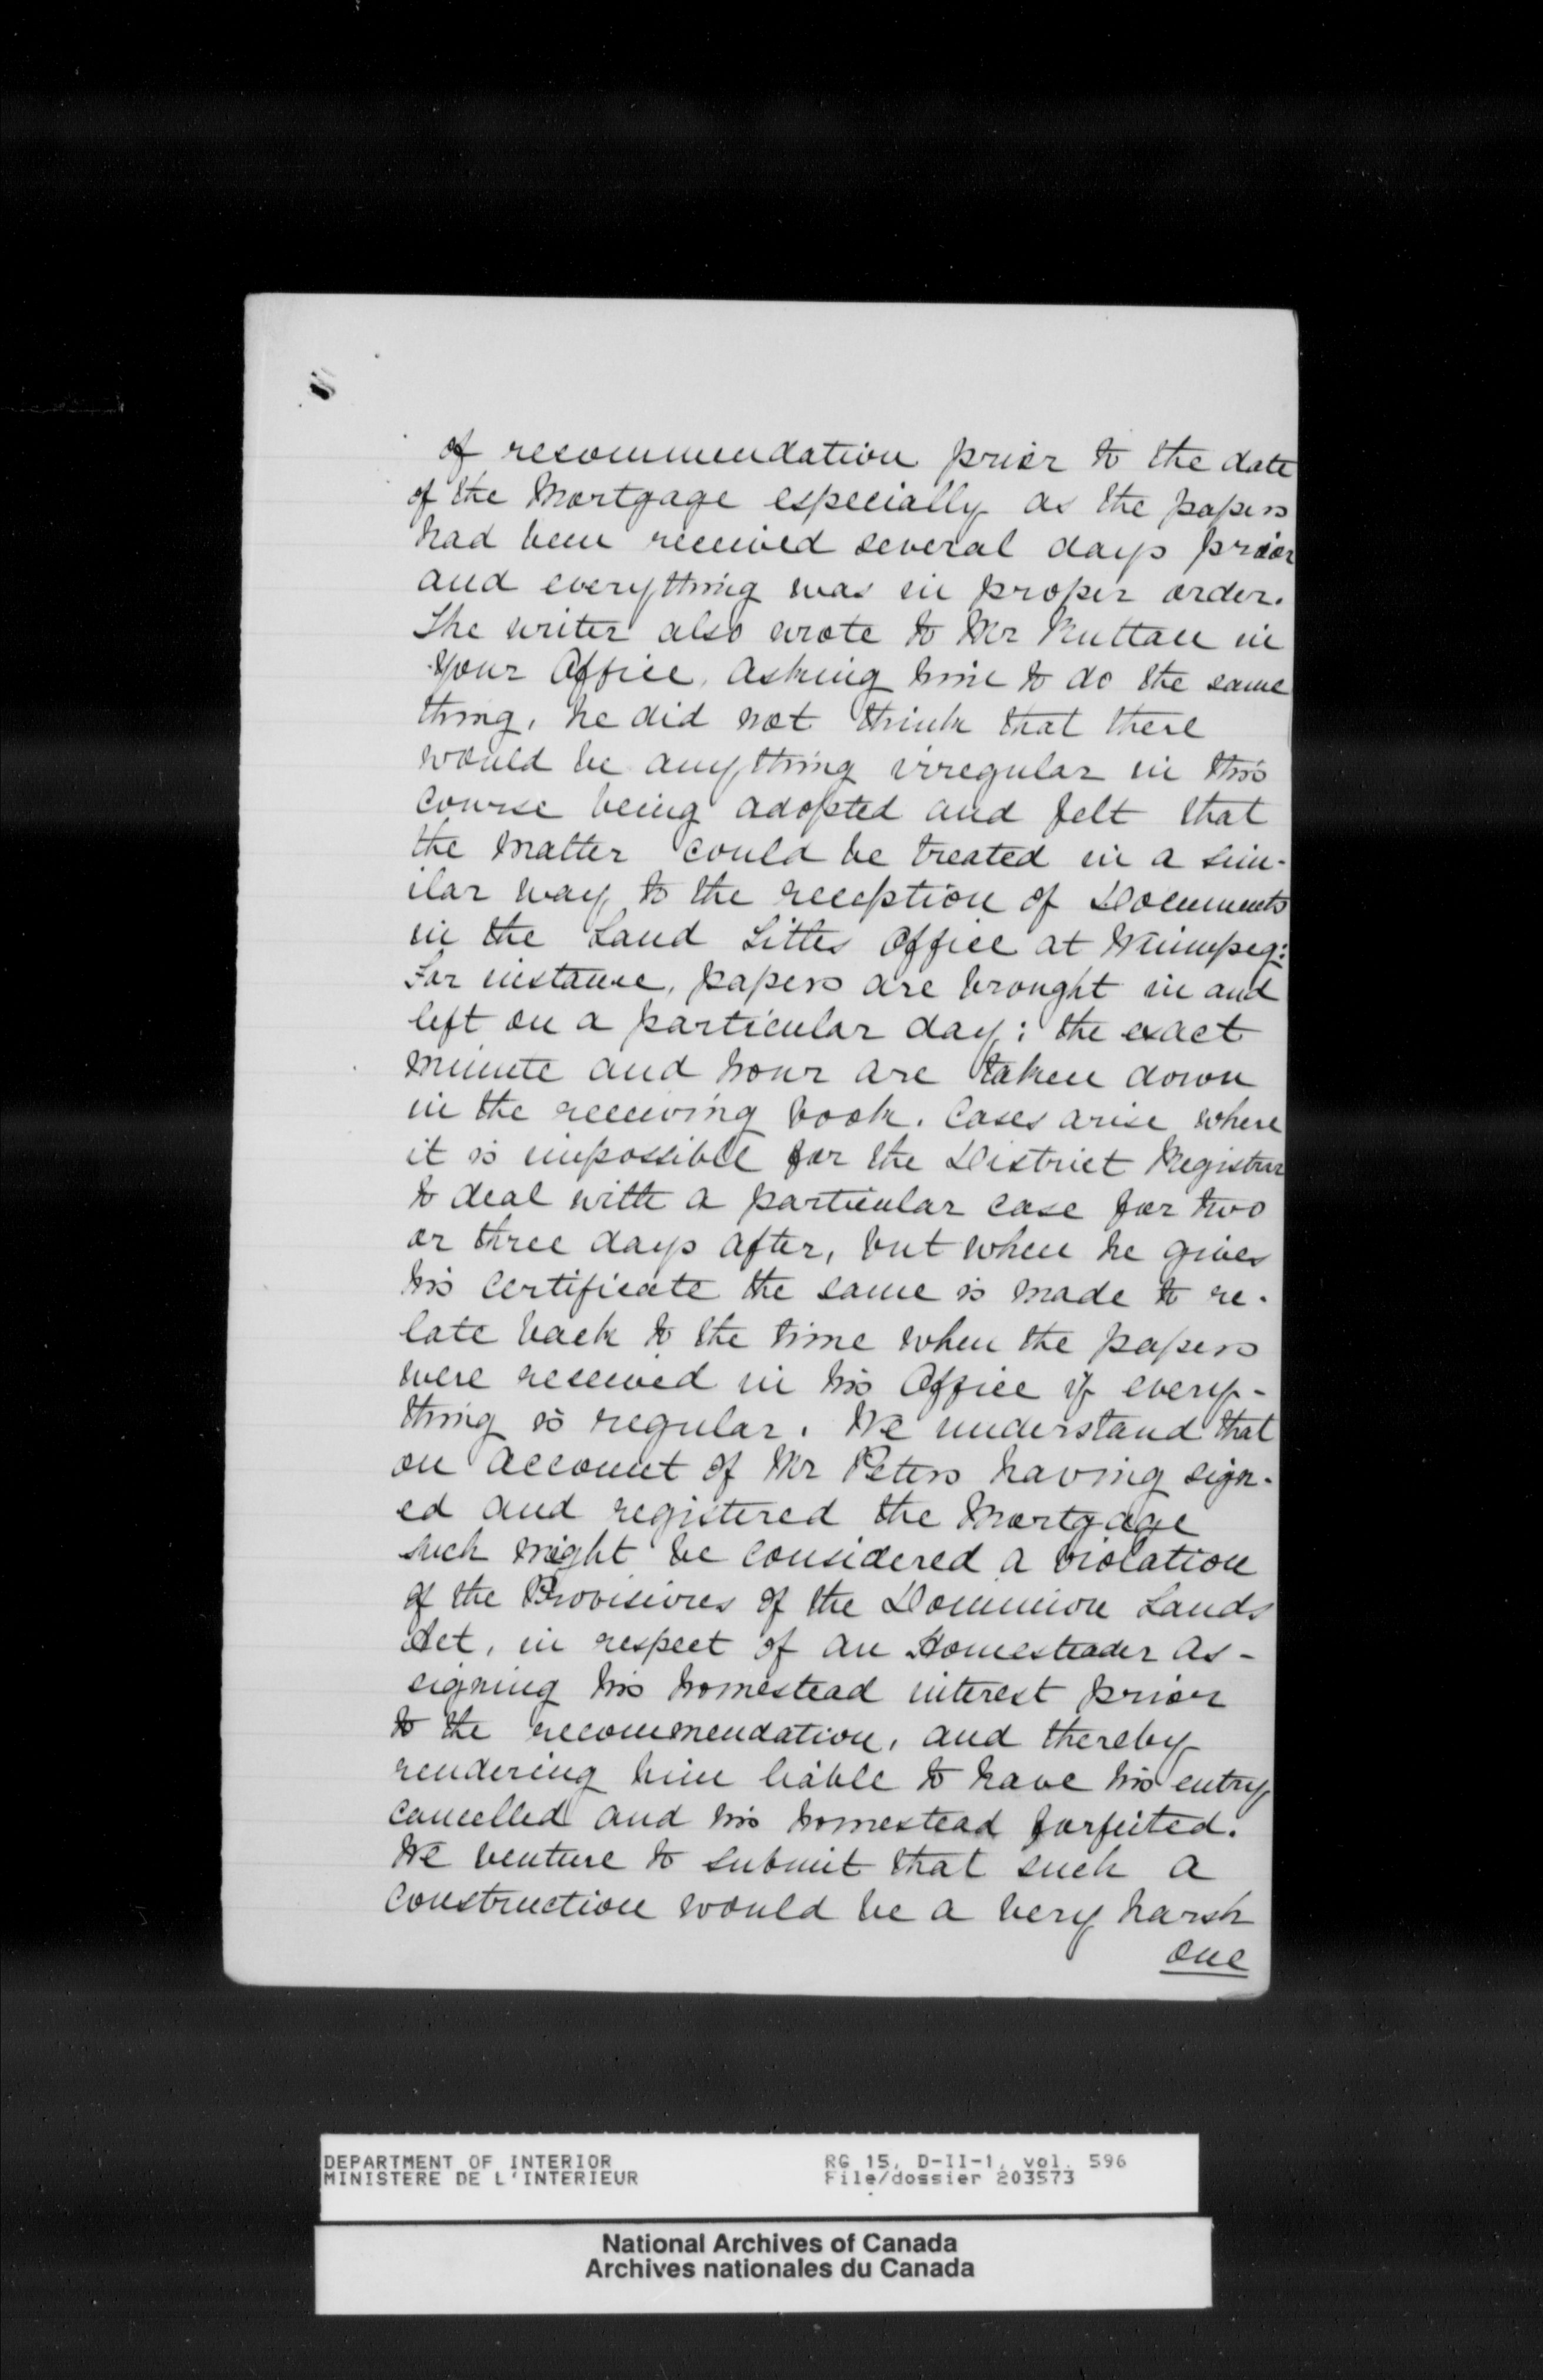 of recommendation prior to the date
of the Mortgage especially as the papers
had been received several days prior
and everything was in proper order.
The writer also wrote to Mr Ruttan in
your Office, asking him to do the same
thing, he did not think that there
would be anything irregular in this
course being adopted and felt that
the matter could be treated in a sim-
ilar way to the reception of Documents
in the Land Titles Office at Winnipeg:
For instance, papers are brought in and
left on a particular day; the exact
minute and hour are taken down
in the receiving book. Cases arise where
it is impossible for the District Registrar
to deal with a particular case for two
or three days after, but when he gives
his certificate the same is made to re-
late back to the time when the papers
were received in his Office if every-
thing is regular. We understand that
on account of Mr Peters having sign-
ed and registered the Mortgage
such might be considered a violation
of the Provisions of the Dominion Lands
Act, in respect of an Homesteader as-
signing his homestead interest prior
to the recommendation, and thereby
rendering him liable to have his entry
cancelled and his homestead forfeited.
We venture to submit that such a
construction would be a very harsh
one
DEPARTMENT OF INTERIOR RG 15, D-II-1, vol. 596
MINISTERE DE L'INTERIEUR File/dossier 203573
National Archives of Canada
Archives nationales du Canada